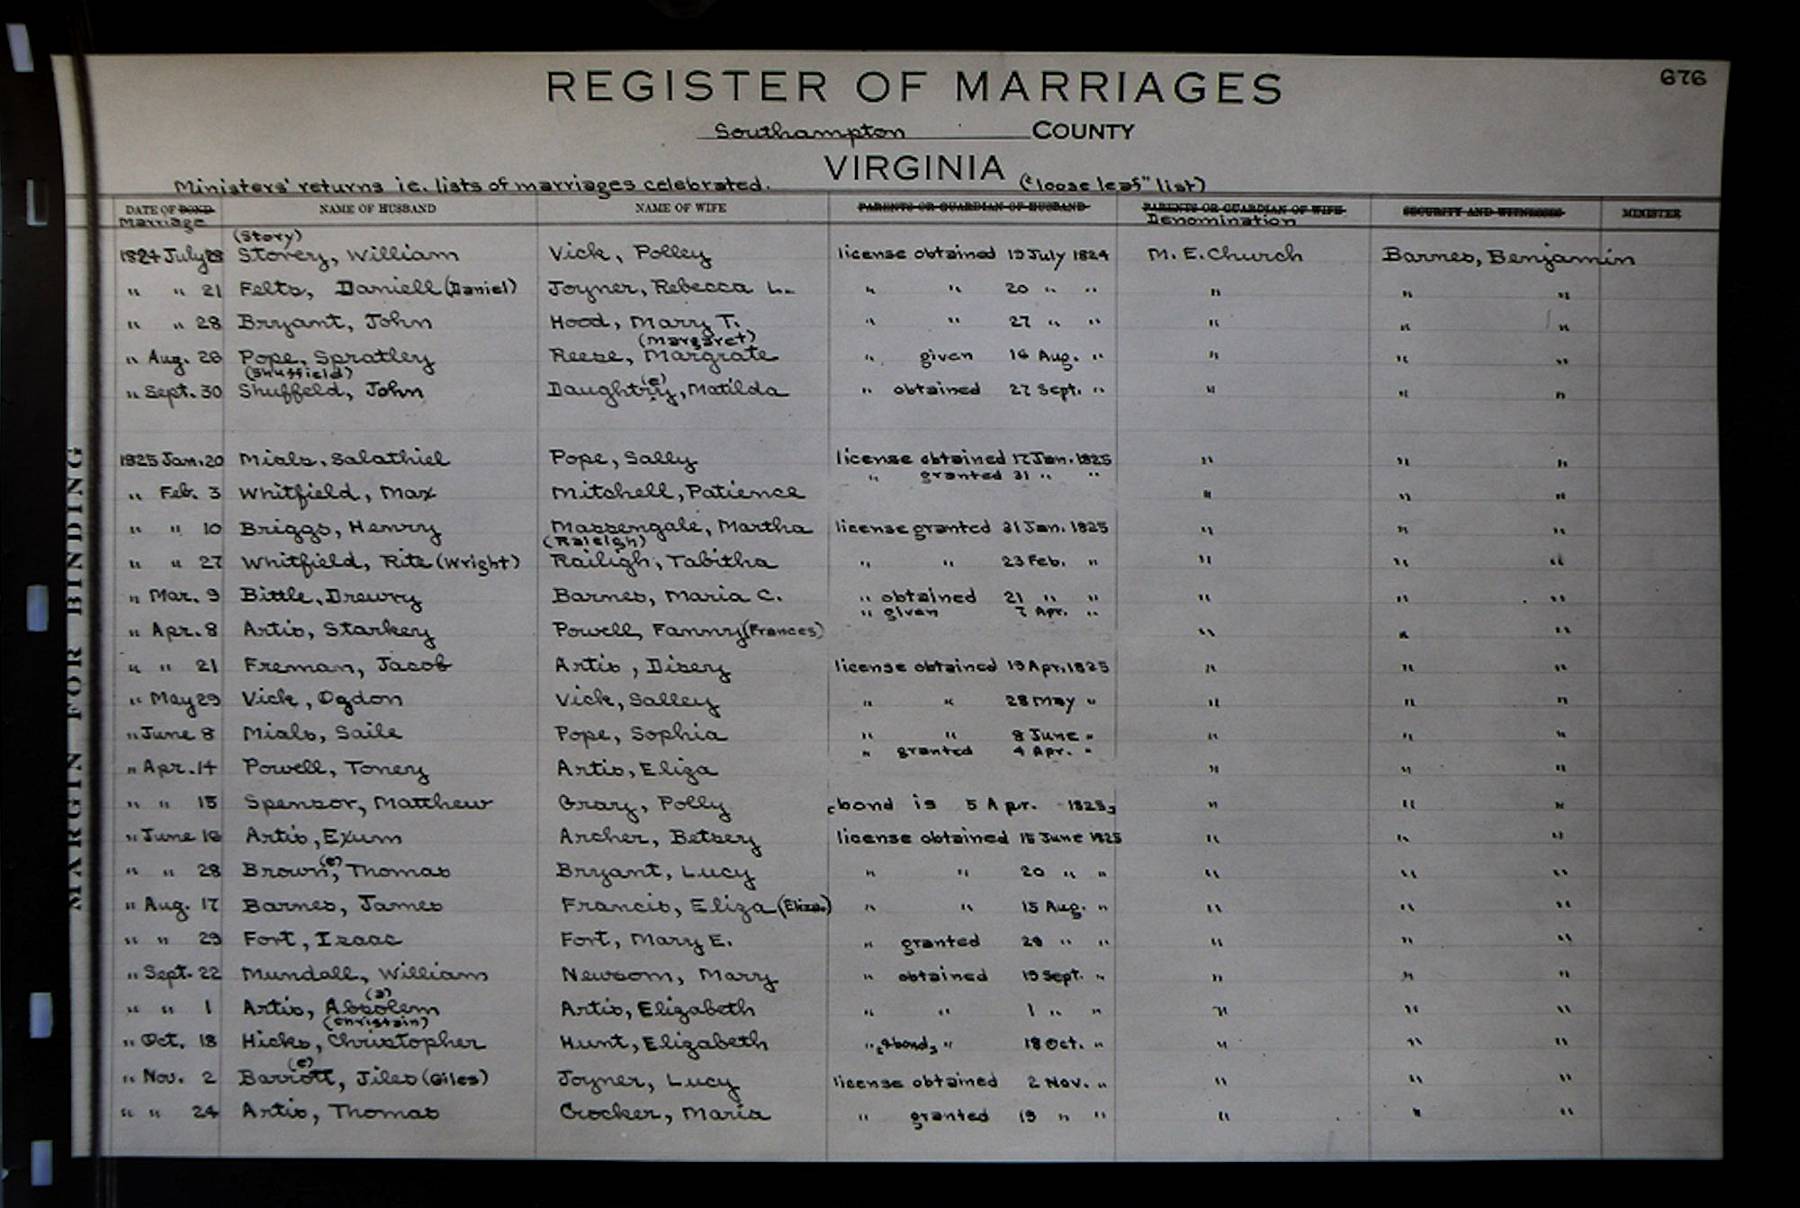 REGISTER OF MARRIAGES
676
Southampton COUNTY
VIRGINIA
Ministers' returns ie. lists of marriages celebrated. ("loose leaf" list)
DATE OF BOND NAME OF HUSBAND NAME OF WIFE PARENTS OR GUARDIAN OF HUSBAND PARENTS OR GUARDIAN OF WIFE SECURITY AND WITNESSES MINISTER
Marriage Denomination
(Story)
1824 July 28 Storey, William Vick, Polley license obtained 19 July 1824 M. E. Church Barnes, Benjamin
" " 21 Felts, Daniell (Daniel) Joyner, Rebecca L. " " 20 " " " " "
" " 28 Bryant, John Hood, Marry T. " " 27 " " " " "
(Margaret)
" Aug. 26 Pope, Spratley Reese, Margrate " given 16 Aug. " " " "
(Shuffield) (e)
" Sept. 30 Shuffeld, John Daughtriy, Matilda " obtained 27 Sept. " " " "
1825 Jan. 20 Mials, Salathiel Pope, Sally license obtained 17 Jan. 1825 " " "
" granted 31 " "
" Feb. 3 Whitfield, Max Mitchell, Patience " " "
" " 10 Briggs, Henry Massengale, Martha license granted 31 Jan. 1825 " " "
(Raleigh)
" " 27 Whitfield, Rite (Wright) Railigh, Tabitha " " 23 Feb. " " " "
" Mar. 9 Bittle, Drewry Barnes, Maria C. " obtained 21 " " " " "
" given 7 Apr. "
" Apr. 8 Artis, Starkey Powell, Fanny (Frances) " " "
" " 21 Freman, Jacob Artis, Disey license obtained 19 Apr. 1825 " " "
" May 29 Vick, Ogdon Vick, Salley " " 28 May " " " "
" June 8 Mials, Saile Pope, Sophia " " 8 June " " " "
" granted 4 Apr. "
" Apr. 14 Powell, Toney Artis, Eliza " " "
" " 15 Spensor, Matthew Gray, Polly [bond is 5 Apr. 1825] " " "
" June 16 Artis, Exum Archer, Betsey license obtained 15 June 1825 " " "
(e)
" " 28 Brown, Thomas Bryant, Lucy " " 20 " " " " "
" Aug. 17 Barnes, James Francis, Eliza (Eliza.) " " 15 Aug. " " " "
" " 29 Fort, Izaac Fort, Mary E. " granted 29 " " " " "
" Sept. 22 Mundall, William Newsom, Marry " obtained 19 Sept. " " " "
(a)
" " 1 Artis, Absolem Artis, Elizabeth " " 1 " " " " "
(Christain)
" Oct. 18 Hicks, Christopher Hunt, Elizabeth " [& bond] " 18 Oct. " " " "
(e)
" Nov. 2 Barrott, Jiles (Giles) Joyner, Lucy license obtained 2 Nov. " " " "
" " 24 Artis, Thomas Crocker, Maria " granted 19 " " " " "
MARGIN FOR BINDING